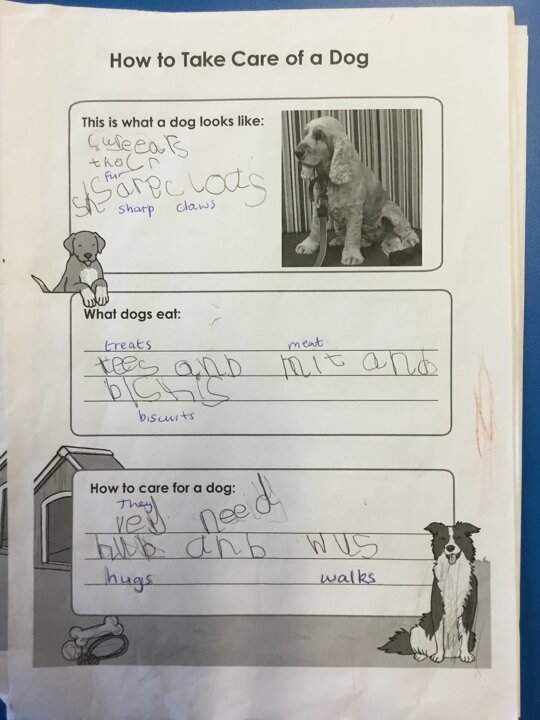 How to Take Care of a Dog
This is what a dog looks like:
ears
fur
sharp claws
What dogs eat:
treats meat
tees and mit and
bisKis
biscuits
How to care for a dog:
They
need
and wus
hugs walks